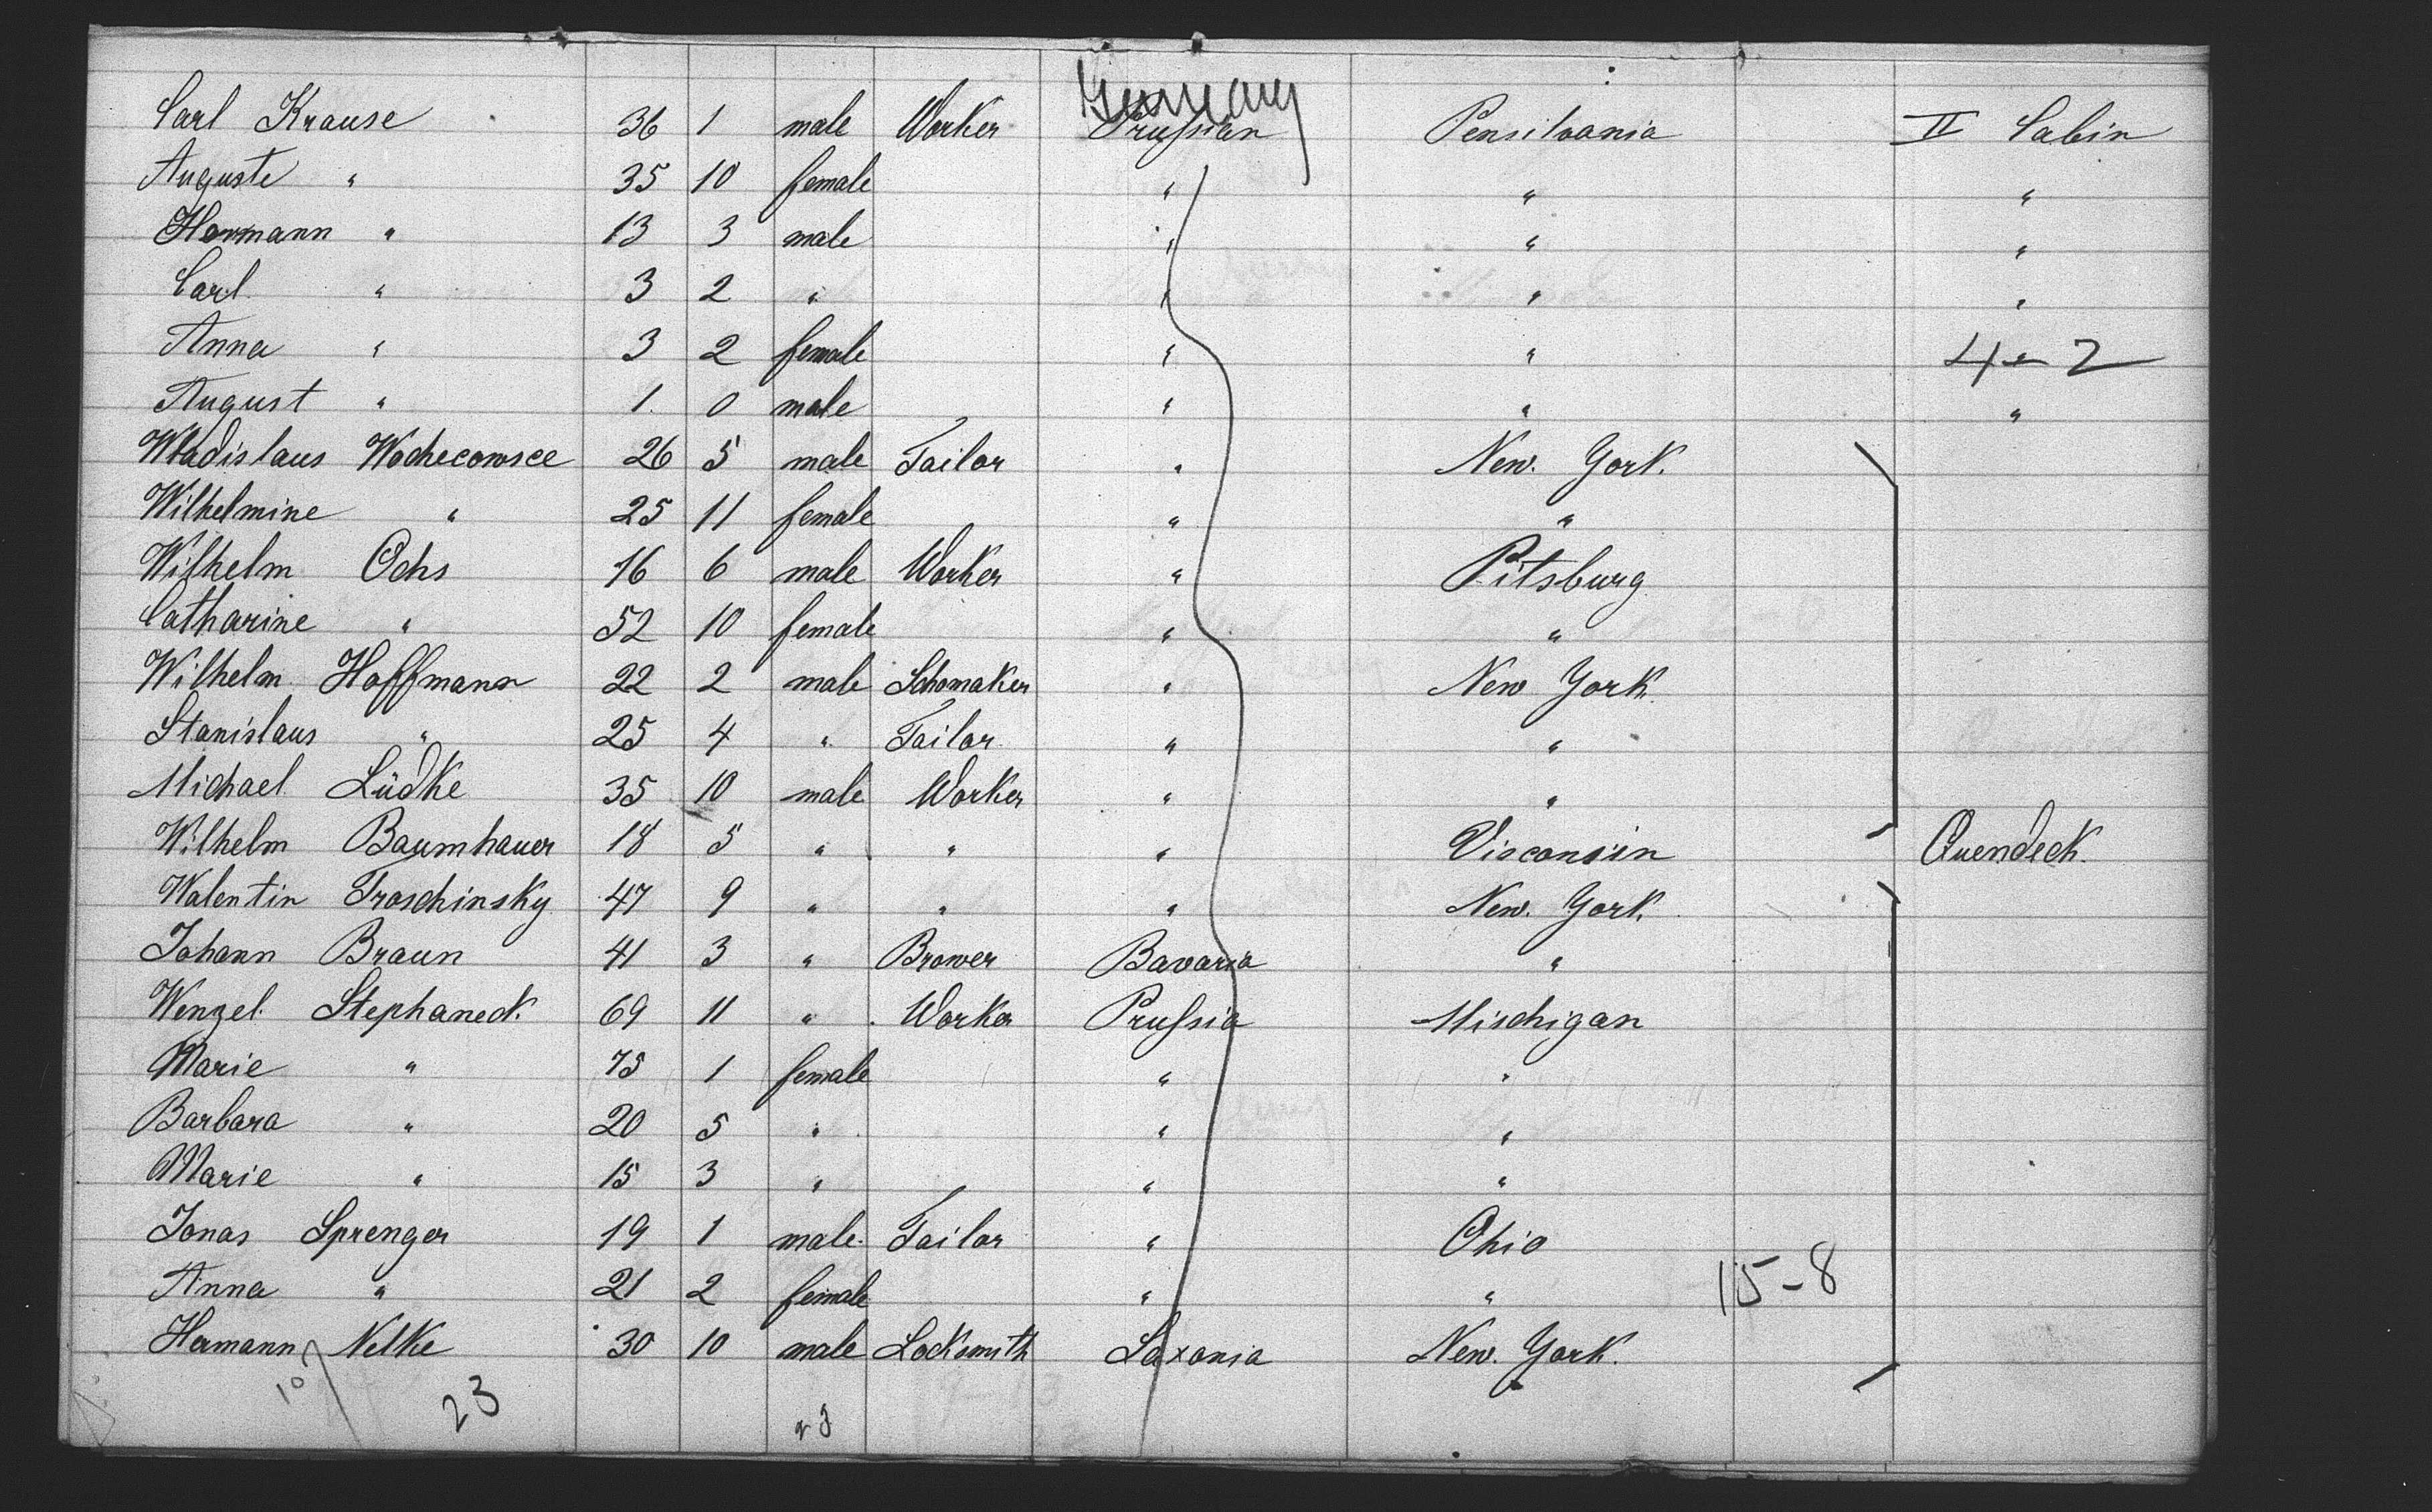 Germany
Carl Krause 36 1 male Worker Prussian Pensilvania II Cabin
Auguste " 35 10 female " " "
Hermann " 13 3 male " " "
Carl " 3 2 " " " "
Anna " 3 2 female " " 4-2
August " 1 0 male " " "
Wladislaus Wochecowsce 26 5 male Tailor " New York.
Wilhelmine " 25 11 female " "
Wilhelm Ochs 16 6 male Worker " Pitsburg
Catharine " 52 10 female " "
Wilhelm Hoffmann 22 2 male Schomaker " New York.
Stanislaus " 25 4 " Tailor " "
Michael Lüdke 35 10 male Worker " "
Wilhelm Baumhauer 18 5 " " " Visconsin Quendeck.
Walentin Troschinsky 47 9 " " " New. York.
Johann Braun 41 3 " Brower Bavaria "
Wenzel Stephaneck. 69 11 " Worker Prussia Mischigan
Marie " 75 1 female " "
Barbara " 20 5 " " "
Marie " 15 3 " " "
Jonas Sprenger 19 1 male Tailor " Ohio
Anna " 21 2 female " " 15-8
Hermann Nelke 30 10 male Locksmith Saxonia New. York.
10
23